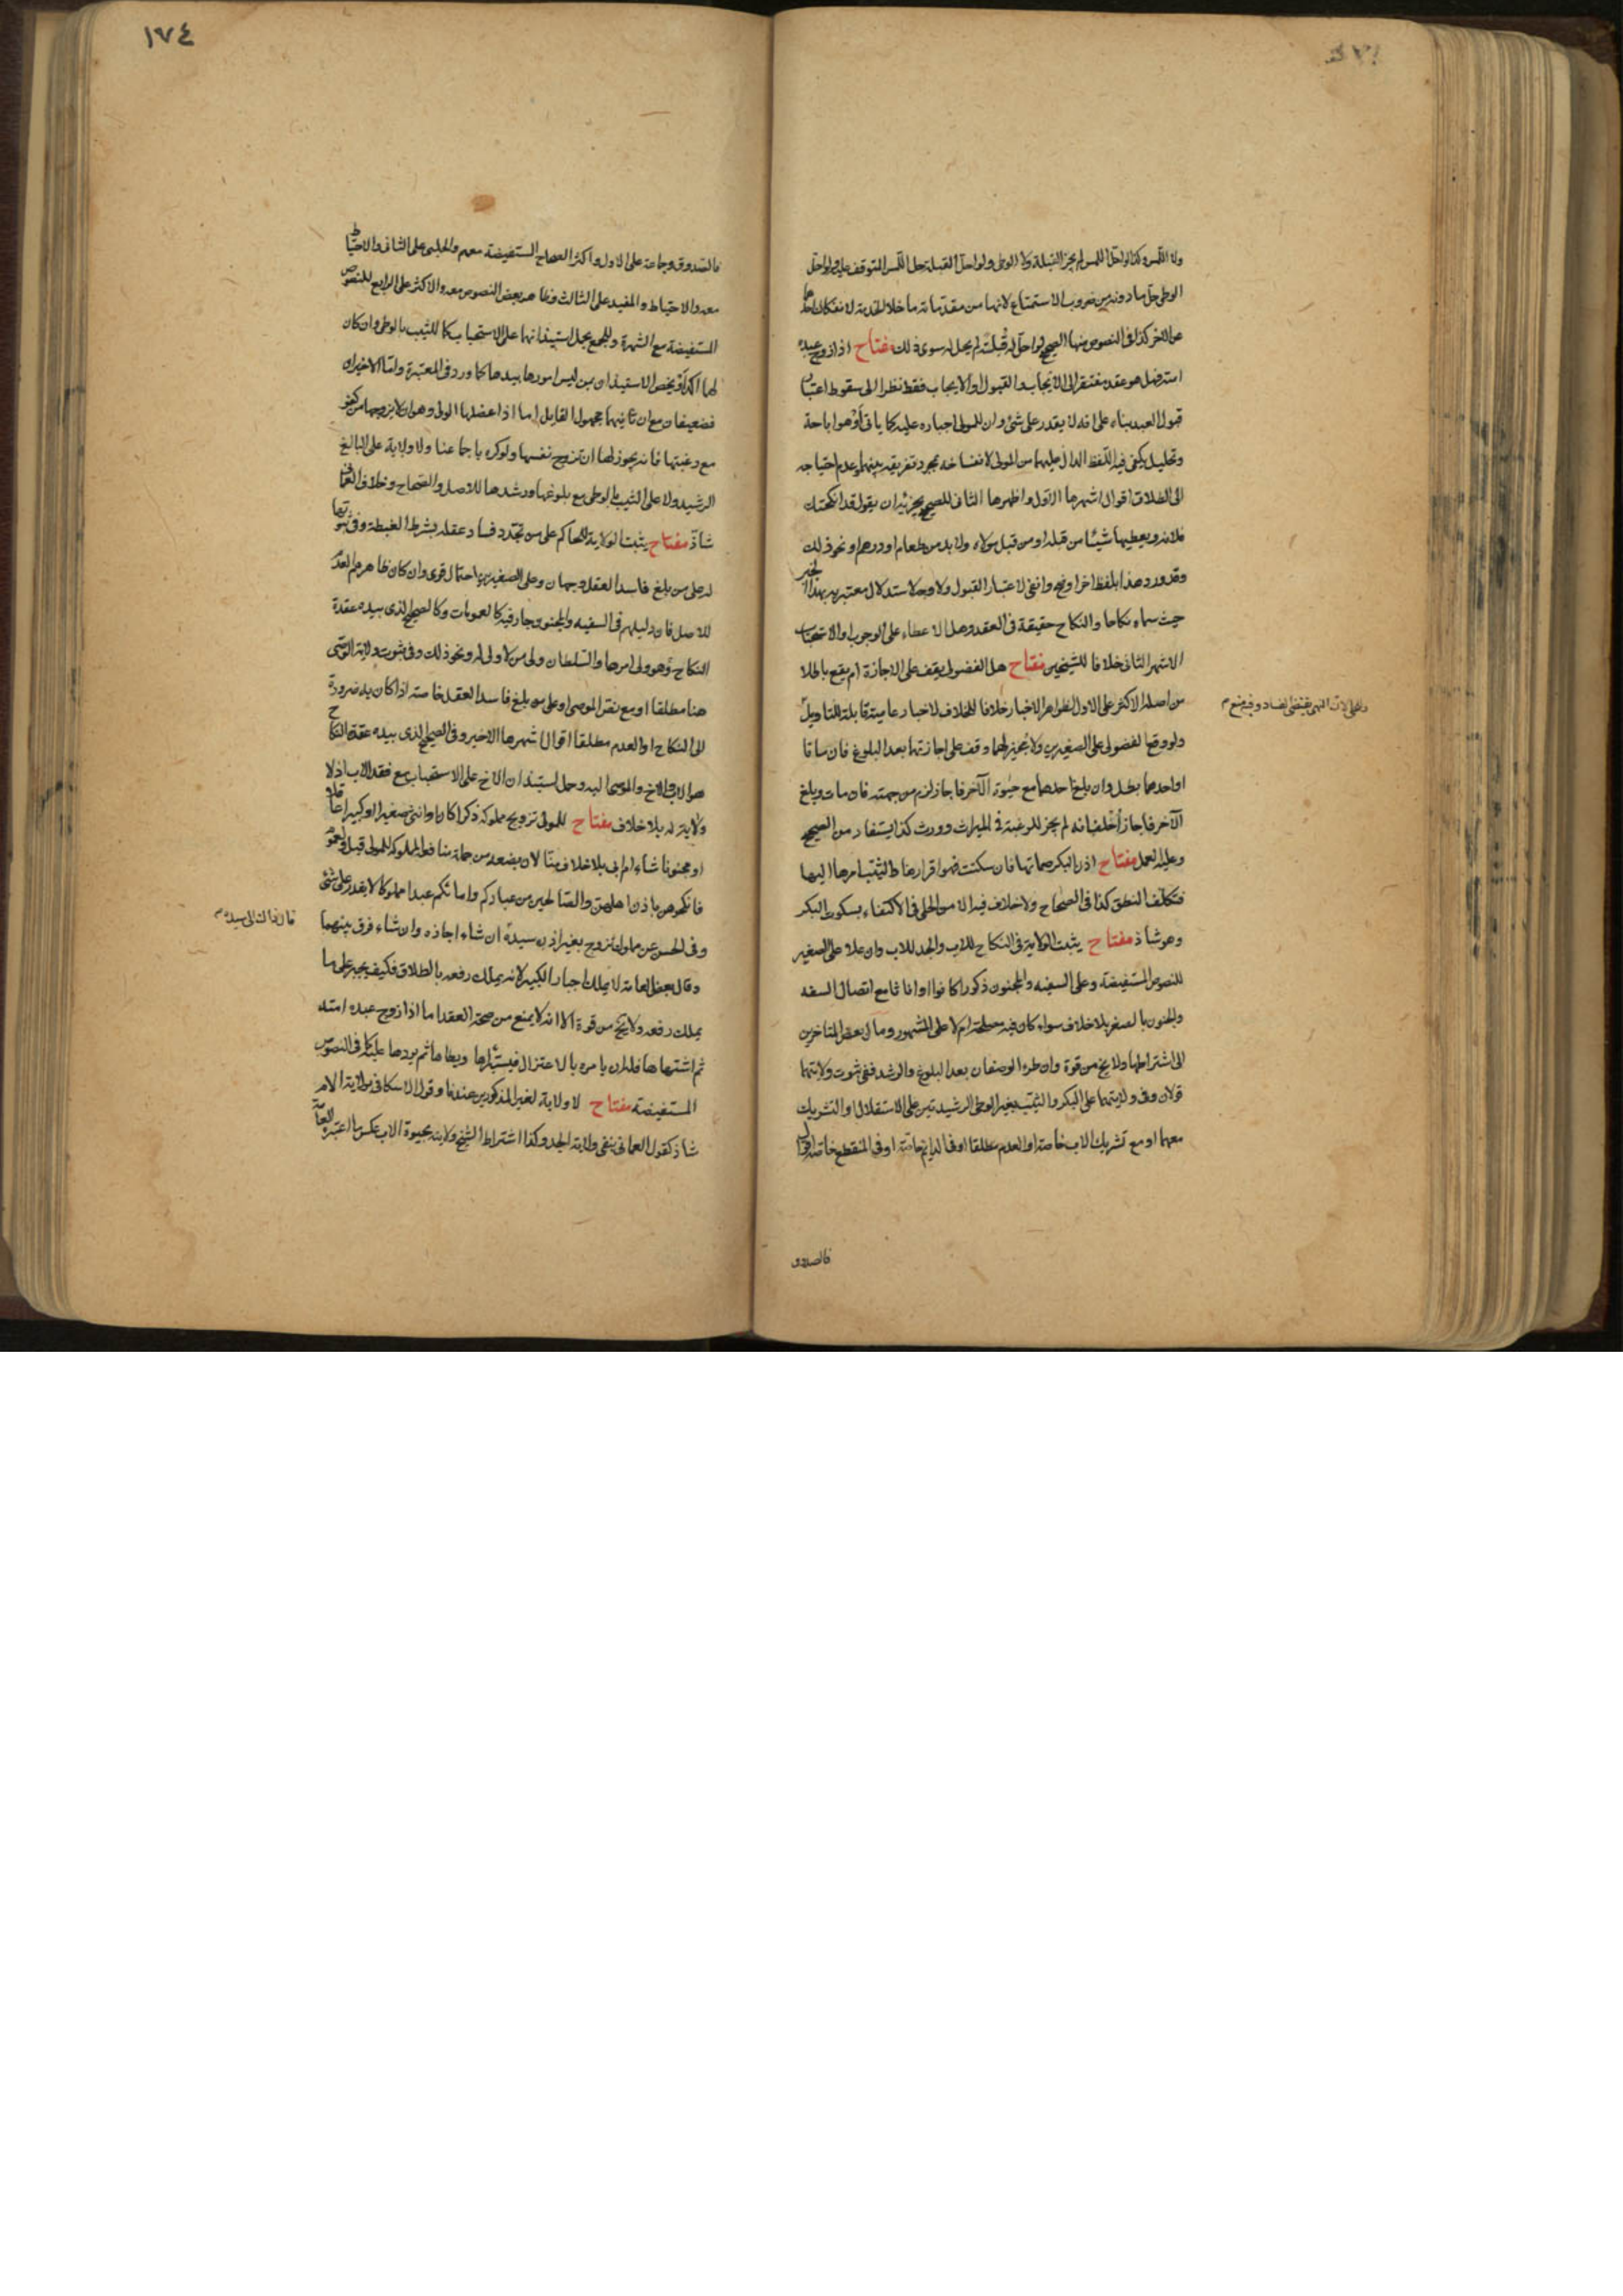 ولا اللمس وكذا لو احل اللمس لم يجز القبلة ولا الوطى ولو احل القبلة حل اللمس المتوقف عليه ولو احل
الوطى حل ما دونه من ضروب الاستمتاع لانها من مقدماته ما خلا الخدمة لانفكاك احدهما
عن الاخر كذا فى النصوص منها الصحيح لو احل له قبلة لم يحل له سوى ذلك مفتاح اذا زوج عبده
امته فهل هو عقد مفتقر الى الايجاب والقبول او الايجاب فقط نظرا الى سقوط اعتبار
قبول العبد بناء على انه لا يقدر على شئ وان للمولى اجباره عليه كما ياتى او هو اباحة
وتحليل يكفى فيه اللفظ الدال عليهما من المولى لانفساخه بمجرد تفريقه بينهما وعدم احتياجه
الى الطلاق اقوال اشهرها الاول واظهرها الثانى للصحيح يجزئه ان يقول قد انكحتك
فلانة ويعطيها شيئا من قبله او من قبل مولاه ولا بد من طعام او درهم او نحو ذلك
وقد ورد هذا بلفظ اخر ونحوه انفى لاعتبار القبول ولا وجه لاستدلال معتبريه بهذا الخبر
حيث سماه نكاحا والنكاح حقيقة فى العقد وهل الاعطاء على الوجوب او الاستحباب
الاشهر الثانى خلافا للشيخين مفتاح هل الفضولى يقف على الاجازة ام يقع باطلا
من اصله الاكثر على الاول لظواهر الاخبار خلافا للخلاف لاخبار عامية قابلة للتاويل
ولو وقع الفضولى على الصغيرين ولا مجيز لهما وقف على اجازتهما بعد البلوغ فان ماتا
او احدهما بطل وان بلغ احدهما مع حيوة الآخر فاجاز لزم من جهته فان مات وبلغ
الآخر فاجاز احلف انه لم يجز للرغبة فى الميراث وورث كذا يستفاد من الصحيح
وعليه العمل مفتاح اذن البكر صماتها فان سكتت فهو اقرارها والثيب امرها اليها
فتكلف النطق كذا فى الصحاح ولا خلاف فيه الا من الحلى فى الاكتفاء بسكوت البكر
وهو شاذ مفتاح يثبت الولاية فى النكاح للاب والجد للاب وان علا على الصغير
للنصوص المستفيضة وعلى السفيه والمجنون ذكورا كانوا او اناثا مع اتصال السفه
والجنون بالصغر بلا خلاف سواء كان فيه مصلحة ام لا على المشهور ومال بعض المتاخرين
الى اشتراطها ولا يخ من قوة وان طرء الوصفان بعد البلوغ والرشد ففى ثبوت ولايتهما
قولان وفى ولايتهما على البكر والثيب بغير الوطى الرشيدتين على الاستقلال او التشريك
معهما او مع تشريك الاب خاصة او العدم مطلقا او فى الدايم خاصة او فى المنقطع خاصة اقوال
فالصدوق
فالصدوق وجماعة على الاول واكثر الصحاح المستفيضة معهم والحلبى على الثانى والاحتياط
معه والاحتياط والمفيد على الثالث وظاهر بعض النصوص معه والاكثر على الرابع للنصوص
المستفيضة مع الشهرة وللجمع بحمل استيذانهما على الاستحباب كما للثيب بالوطى وان كان
لهما اكد او يخص الاستيذان بمن ليس امورها بيدها كما ورد فى المعتبرة واما الاخيران
فضعيفان مع ان ثانيهما مجهول القايل اما اذا عضلها الولى وهو ان لا يزوجها من كفو
مع رغبتها فانه يجوز لها ان تزوج نفسها ولو كره باجماعنا ولا ولاية على البالغ
الرشيد ولا على الثيب بالوطى مع بلوغها ورشدها للاصل والصحاح وخلاف العمانى
شاذ مفتاح يثبت الولاية للحاكم على من تجدد فساد عقله بشرط الغبطة وفى ثبوتها
له على من بلغ فاسد العقل وجهان وعلى الصغيرين احتمال قوى وان كان ظاهرهم العدم
للاصل فان دليلهم فى السفيه والمجنون جار فيه كالعمومات وكالصحيح الذى بيده عقدة
النكاح هو ولى امرها والسلطان ولى من لا ولى له ونحو ذلك وفى ثبوت ولاية الوصى
هنا مطلقا او مع نص الموصى او على من بلغ فاسد العقل خاصة اذا كان به ضرورة
الى النكاح او العدم مطلقا اقوال اشهرها الاخير وفى الصحيح الذى بيده عقدة النكاح
هو الاب والاخ والموصى اليه وحمل استيذان الاخ على الاستحباب مع فقد الاب اذ لا
ولاية له بلا خلاف مفتاح للمولى تزويج مملوكه ذكرا كان او انثى صغيرا او كبيرا عاقلا
او مجنونا شاء ام ابى بلا خلاف منا لان بضعه من جملة منافع المملوكة للمولى قبل ولعموم
فانكحوهن باذن اهلهن والصالحين من عبادكم وامائكم عبدا مملوكا لا يقدر على شئ
وفى الحسن عن مملوك تزوج بغير اذن سيده ان شاء اجازه وان شاء فرق بينهما
وقال بعض العامة لا يملك اجبار الكبير لانه يملك رفعه بالطلاق فكيف يجبر على ما
يملك رفعه ولا يخ من قوة الا انه لا يمنع من صحة العقد اما اذا زوج عبده امته
ثم اشتهاها فله ان يامره بالاعتزال فيستبرئها ويطاها ثم يردها عليه كما فى النصوص
المستفيضة مفتاح لا ولاية لغير المذكورين عندنا وقول الاسكافى بولاية الام
شاذ كقول العمانى بنفى ولاية الجد وكذا اشتراط الشيخ ولايته بحيوة الاب عكس ما اعتبره العامة
قال ذاك الى سيده